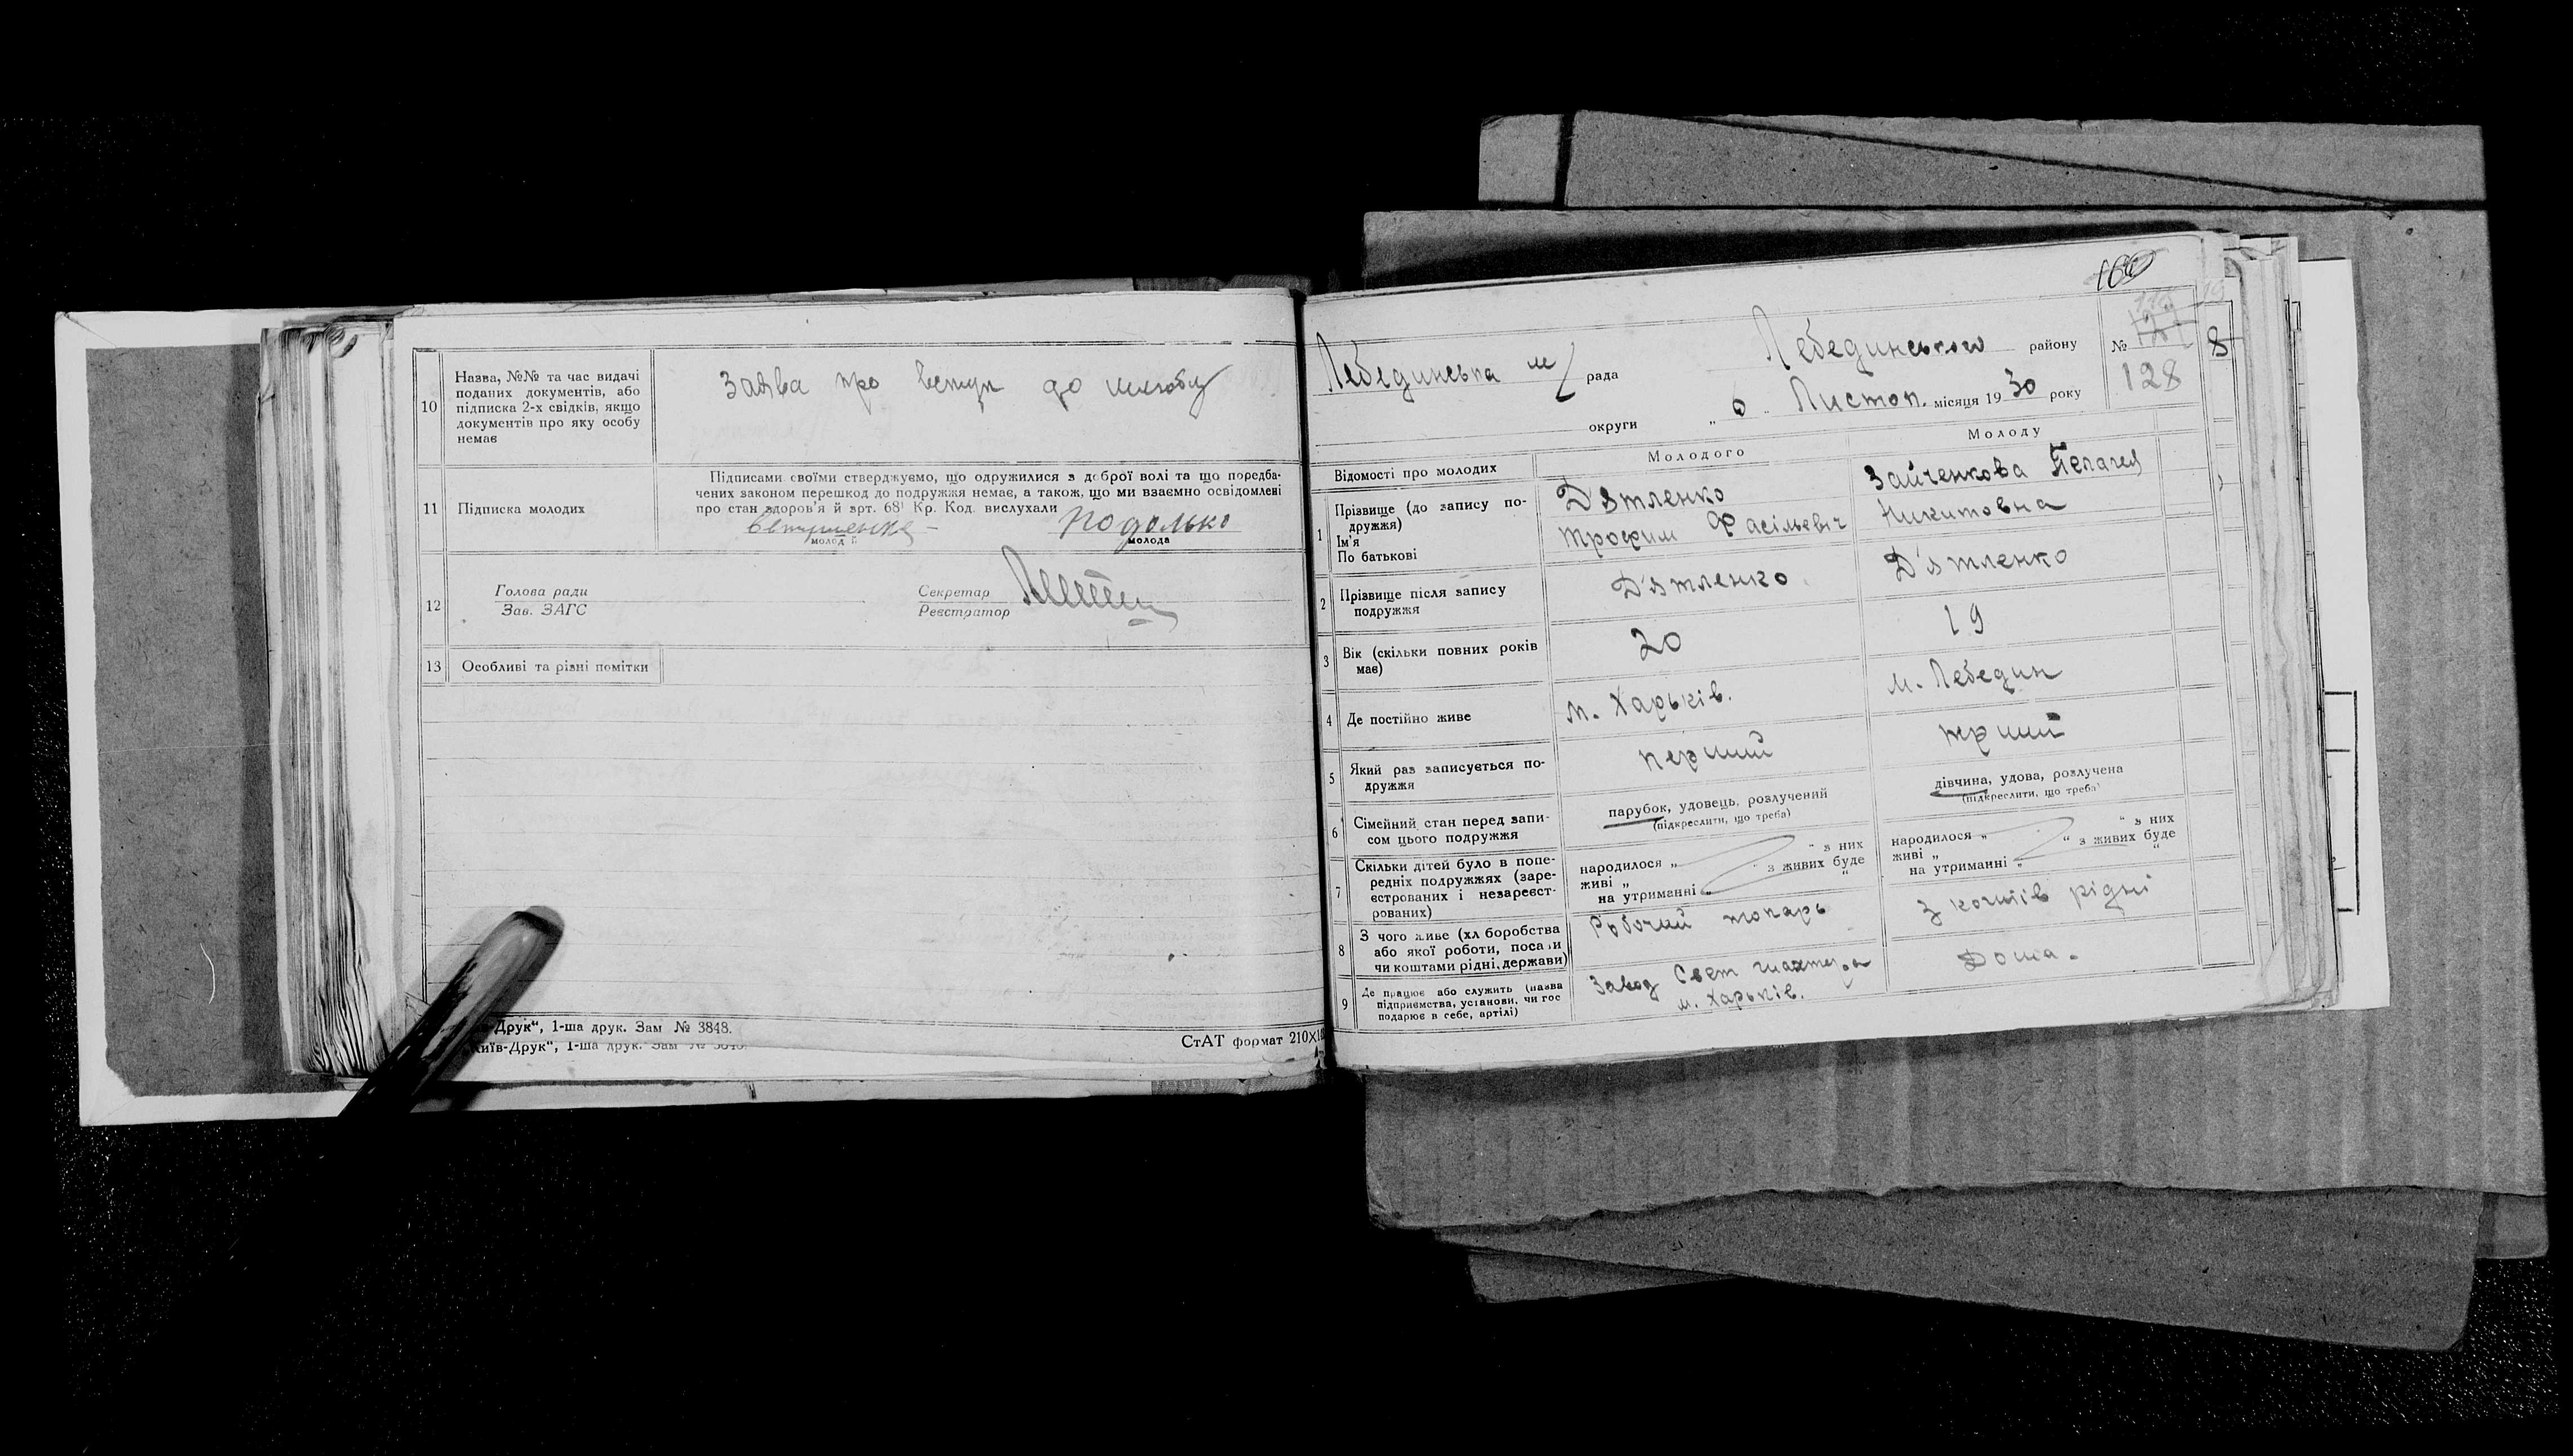 10
Назва, №№ та час видачі
поданих документів, або
підписка 2-х свідків, якщо
документів про яку особу
немає
Заява про вступ до шлюбу
11
Підписка молодих
Підписами своїми стверджуємо, що одружилися з доброї волі та що передба-
чених законом перешкод до подружжя немає, а також, що ми взаємно освідомлені
про стан здоров'я й арт. 68¹ Кр. Код. вислухали
Подолько
молодий
молода
12
Голова ради
Зав. ЗАГС
Секретар
Реєстратор
13
Особливі та різні помітки
Друк“, 1-ша друк. Зам № 3848.
Київ-Друк“, 1-ша друк. Зам № 3848.
СтАТ формат 210×1
160
Лебединська м/рада
Лебединського району
№
128
8
округи
„ 6 „ Листоп. місяця 1930 року
Відомості про молодих
Молодого
Молоду
1
Прізвище (до запису по-
дружжя)
Ім'я
По батькові
Дятленко
Трофим Фасільевіч
Зайченкова Пелагея
Никитовна
2
Прізвище після запису
подружжя
Д'ятленко
Д'ятленко
3
Вік (скільки повних років
має)
20
19
4
Де постійно живе
м. Харьків.
м. Лебедин
5
Який раз записується по-
дружжя
перший
6
Сімейний стан перед запи-
сом цього подружжя
парубок, удовець, розлучений
(підкреслити, що треба)
дівчина, удова, розлучена
(підкреслити, що треба)
7
Скільки дітей було в попе-
редніх подружжях (заре-
єстрованих і незареєст-
рованих)
народилося „ “ з них
живі „ “ з живих буде
на утриманні „ “
народилося „ “ з них
живі „ “ з живих буде
на утриманні „ “
8
З чого живе (хліборобства
або якої роботи, посади
чи коштами рідні, держави)
Робочий токарь
З коштів рідні
9
Де працює або служить (назва
підприємства, установи, чи гос
подарює в себе, артілі)
Завод Свет шахтера
м. Харьків.
Дома.